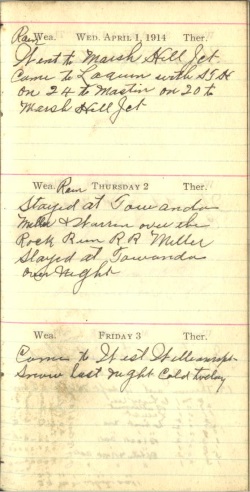 Rain
Wea. WED. APRIL 1, 1914 Ther.
Went to Marsh Hill Jct.
Came to Laquin with S.G.H
on 24 to Mastin on 20 to
Marsh Hill Jct
Wea. Rain THURSDAY 2 Ther.
Stayed at Towanda
Miller & Warren over the
Rock Run R R Miller
Stayed at Towanda
over night
Wea. FRIDAY 3 Ther.
Came to West
Snow last night Cold today